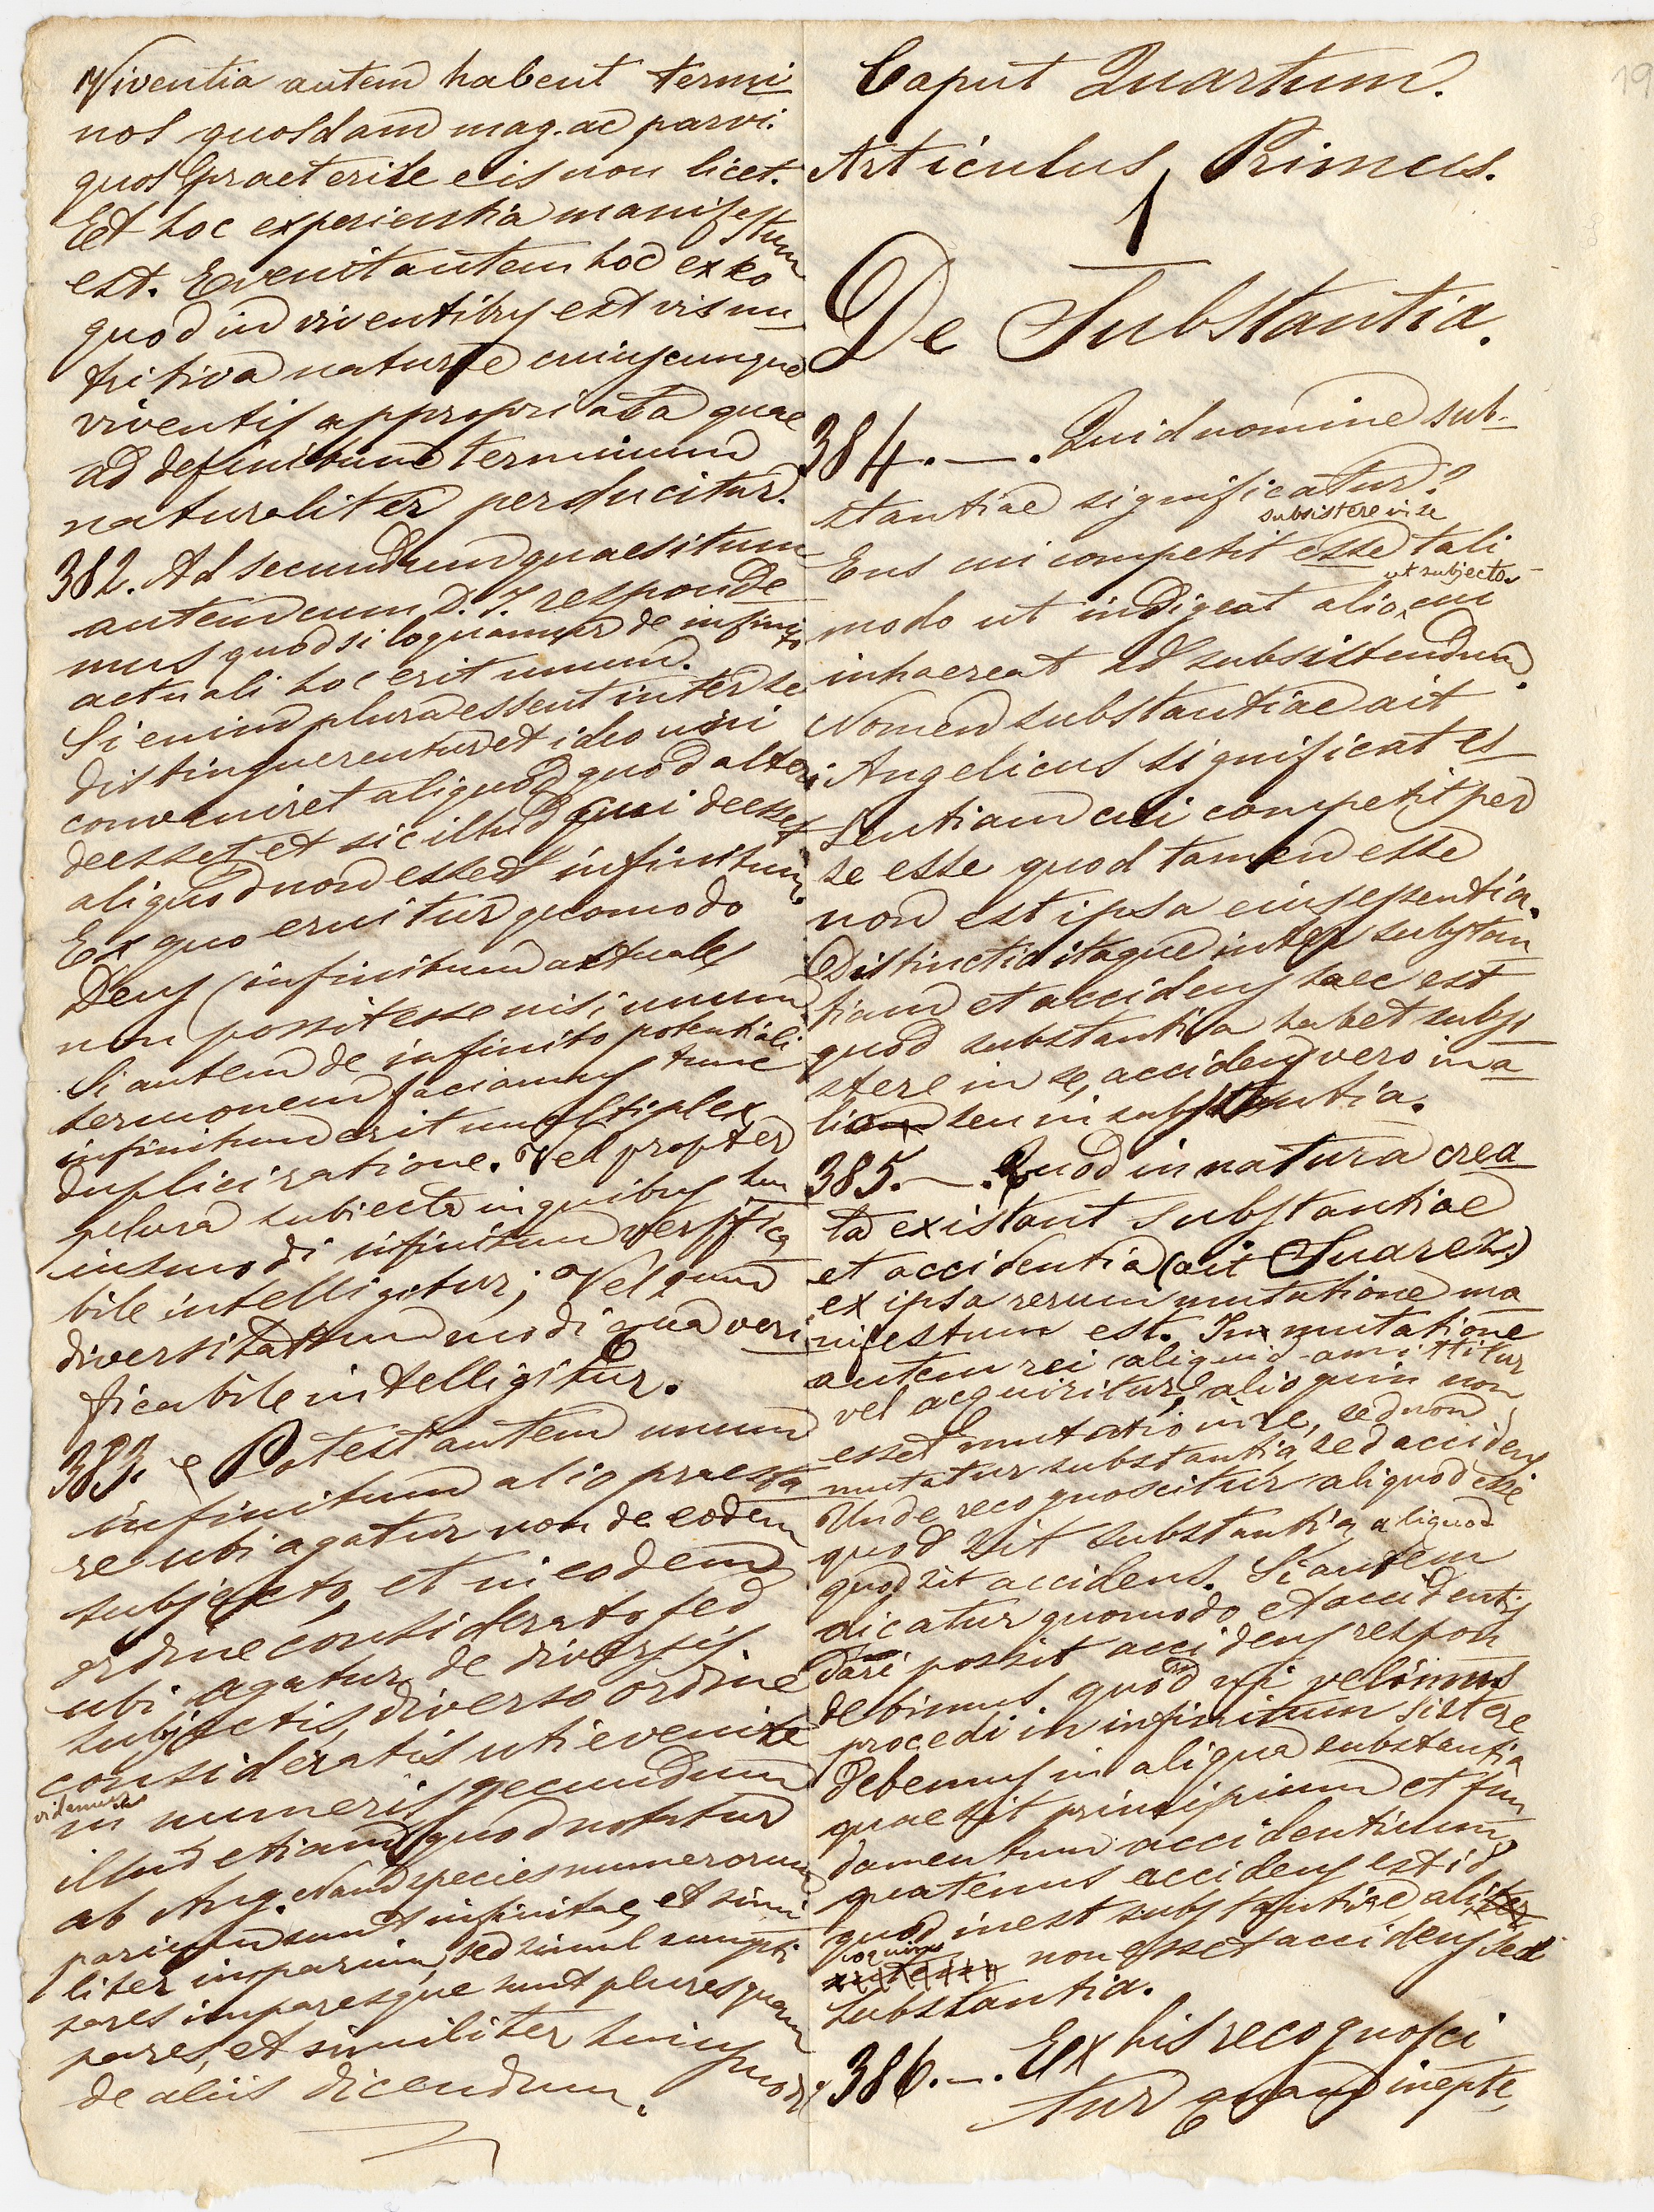 Viventia autem habent termi
nos quosdam mag. ac parvi:
quos praeterire eis non licet.
Et hoc experientia manifestum
est. Evenit autem hoc ex eo
quod in viventibus est vis nu
tritiva naturae cuiuscunque
viventis appropriata quae
ad definitum terminum
naturaliter perducitur.
382. Ad secundum quaesitum
autem cum D. T. responde
mus quod si loquamur de infinito
actuali hoc erit unum.
Si enim plura essent inter se
distinguerentur et ideo uni
conveniret aliquod quod alteri
deesset et sic illud cui deesset
aliquod non esset infinitum.
Ex quo eruitur quomodo
Deus (infinitum actuale)
non possit esse nisi unum.
Si autem de infinito potentiali
sermonem faciamus tunc
infinitum erit multiplex
duplici ratione. Vel propter
plura subiecta in quibus hu
iusmodi infinitum verifica
bile intelligitur; Vel quum
diversitatum modi qua veri
ficabile intelligitur.
383. Potest autem unum
infinitum alio praesta
re ubi agatur non de eodem
subjecto, et in eodem
ordine considerato sed
ubi agatur de diversis
subjectis, diverso ordine
consideratis uti evenire
videmus
in numeris secundum
illud etiam quod notatur
ab Ang. Nam species numerorum
parium sunt infinitae, et simi
liter imparium, sed simul sumpti
pares imparesque sunt plures quam
pares, et similiter huiusmodi
de aliis dicendum.
19
Caput Quartum.
Articulus Primus.
1
De Substantia.
384. — . Quid nomine sub-
stantiae significatur?
subsistere in se
Ens cui competit esse tali
ut subjecto
modo ut indigeat alio cui
inhaereat ad subsistendum.
Nomen substantiae ait
Angelicus significat es
sentiam cui competit per
se esse quod tamen esse
non est ipsa eius essentia.
Distinctio itaque inter substan
tiam et accidens haec est
quod substantia habet subsi
stere in se, accidens vero in a
lio seu in substantia.
385. — . Quod in natura crea
ta existant substantiae
et accidentia (ait Suarez)
ex ipsa rerum mutatione ma
nifestum est. In mutatione
autem rei aliquid amittitur
vel acquiritur, alioquin non
esset mutatio in re, sed non
mutatur substantia, sed accidens
Unde recognoscitur aliquod esse
quod sit substantia, aliquod
quod sit accidens. Si autem
dicatur quomodo et accidentis
dari possit accidens respon
debimus quod ni velimus
procedi in infinitum sistere
debemus in aliqua substantia
quae sit principium et fun
damentum accidentium,
quatenus accidens est id
quod inest substantiae ali
oquin non esset accidens sed
substantia.
386. — . Ex his recognosci
tur quam inepte,